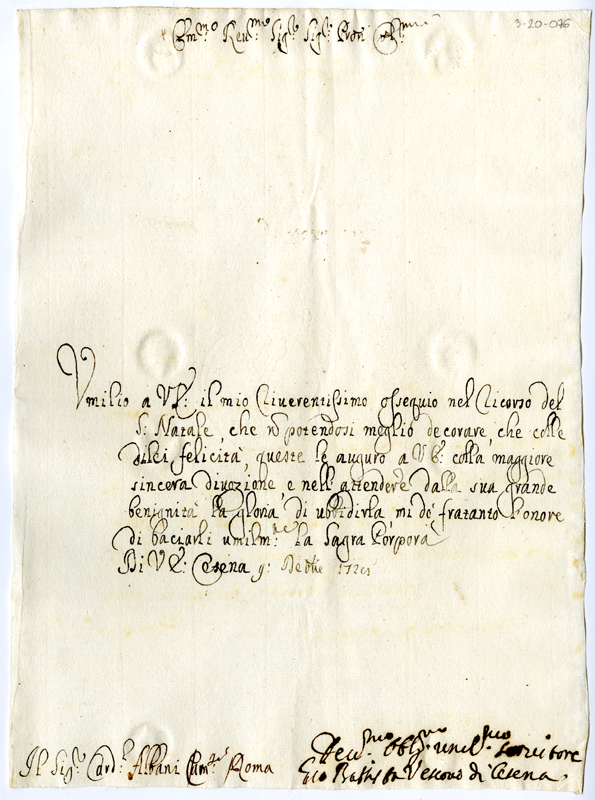 3-20-076
Em.mo Reu.mo Sig.r Sig.r Pron
Vmilio a VE: il mio riuerentissimo ossequio nel ricorso del
S: Natale, che no potendosi meglio decorare, che colle
dilei felicità, queste le auguro a VE: colla maggiore
sincera diuozione, e nell'attendere dalla sua grande
benignità la gloria di ubbidirla mi do fratanto l'onore
di baciarli umilm.te la Sagra Porpora
Di VE: Cesena 9: Dec.bre
Il Sig.r Card.l Albani Cam.
Roma
Deu.mo Obbl.mo seruitore
Gio Battista Vescouo di Cesena